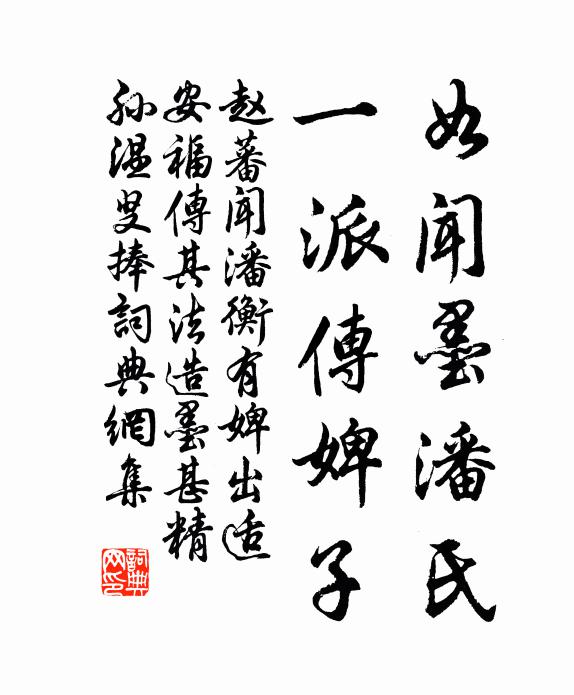 如闻墨潘氏
一派傳婢子
赵蕃闻潘衡有婢出适
安福傳其法造墨甚精
孙温叟捧詞典網集
詞典網印